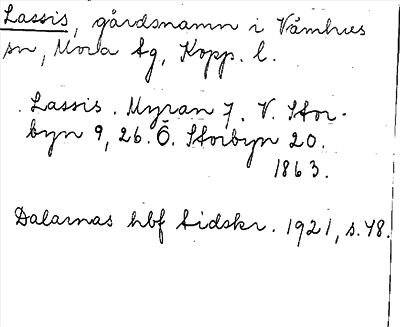 Lassis, gårdsnamn i Våmhus
sn, Mora tg, Kopp. l.
Lassis. Myran 7. V. Stor-
byn 9, 26. Ö. Storbyn 20.
1863.
Dalarnas hbf tidskr. 1921, s. 48.